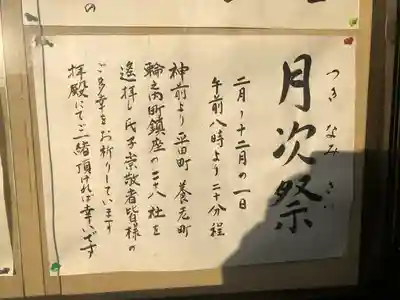 月次祭
つきなみさい
二月〜十二月の一日
午前八時より二十分程
神前より平田町 養老町
輪之内町鎮座の二十八社を
遙拝し氏子崇敬者皆様の
ご多幸をお祈りしています
拝殿にてご一緒頂ければ幸いです
の